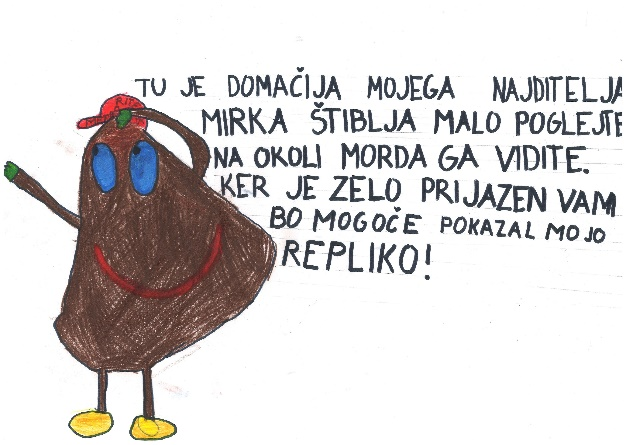 TU JE DOMAČIJA MOJEGA NAJDITELJA
MIRKA ŠTIBLJA MALO POGLEJTE
NA OKOLI MORDA GA VIDITE.
KER JE ZELO PRIJAZEN VAM
BO MOGOČE POKAZAL MOJO
REPLIKO!